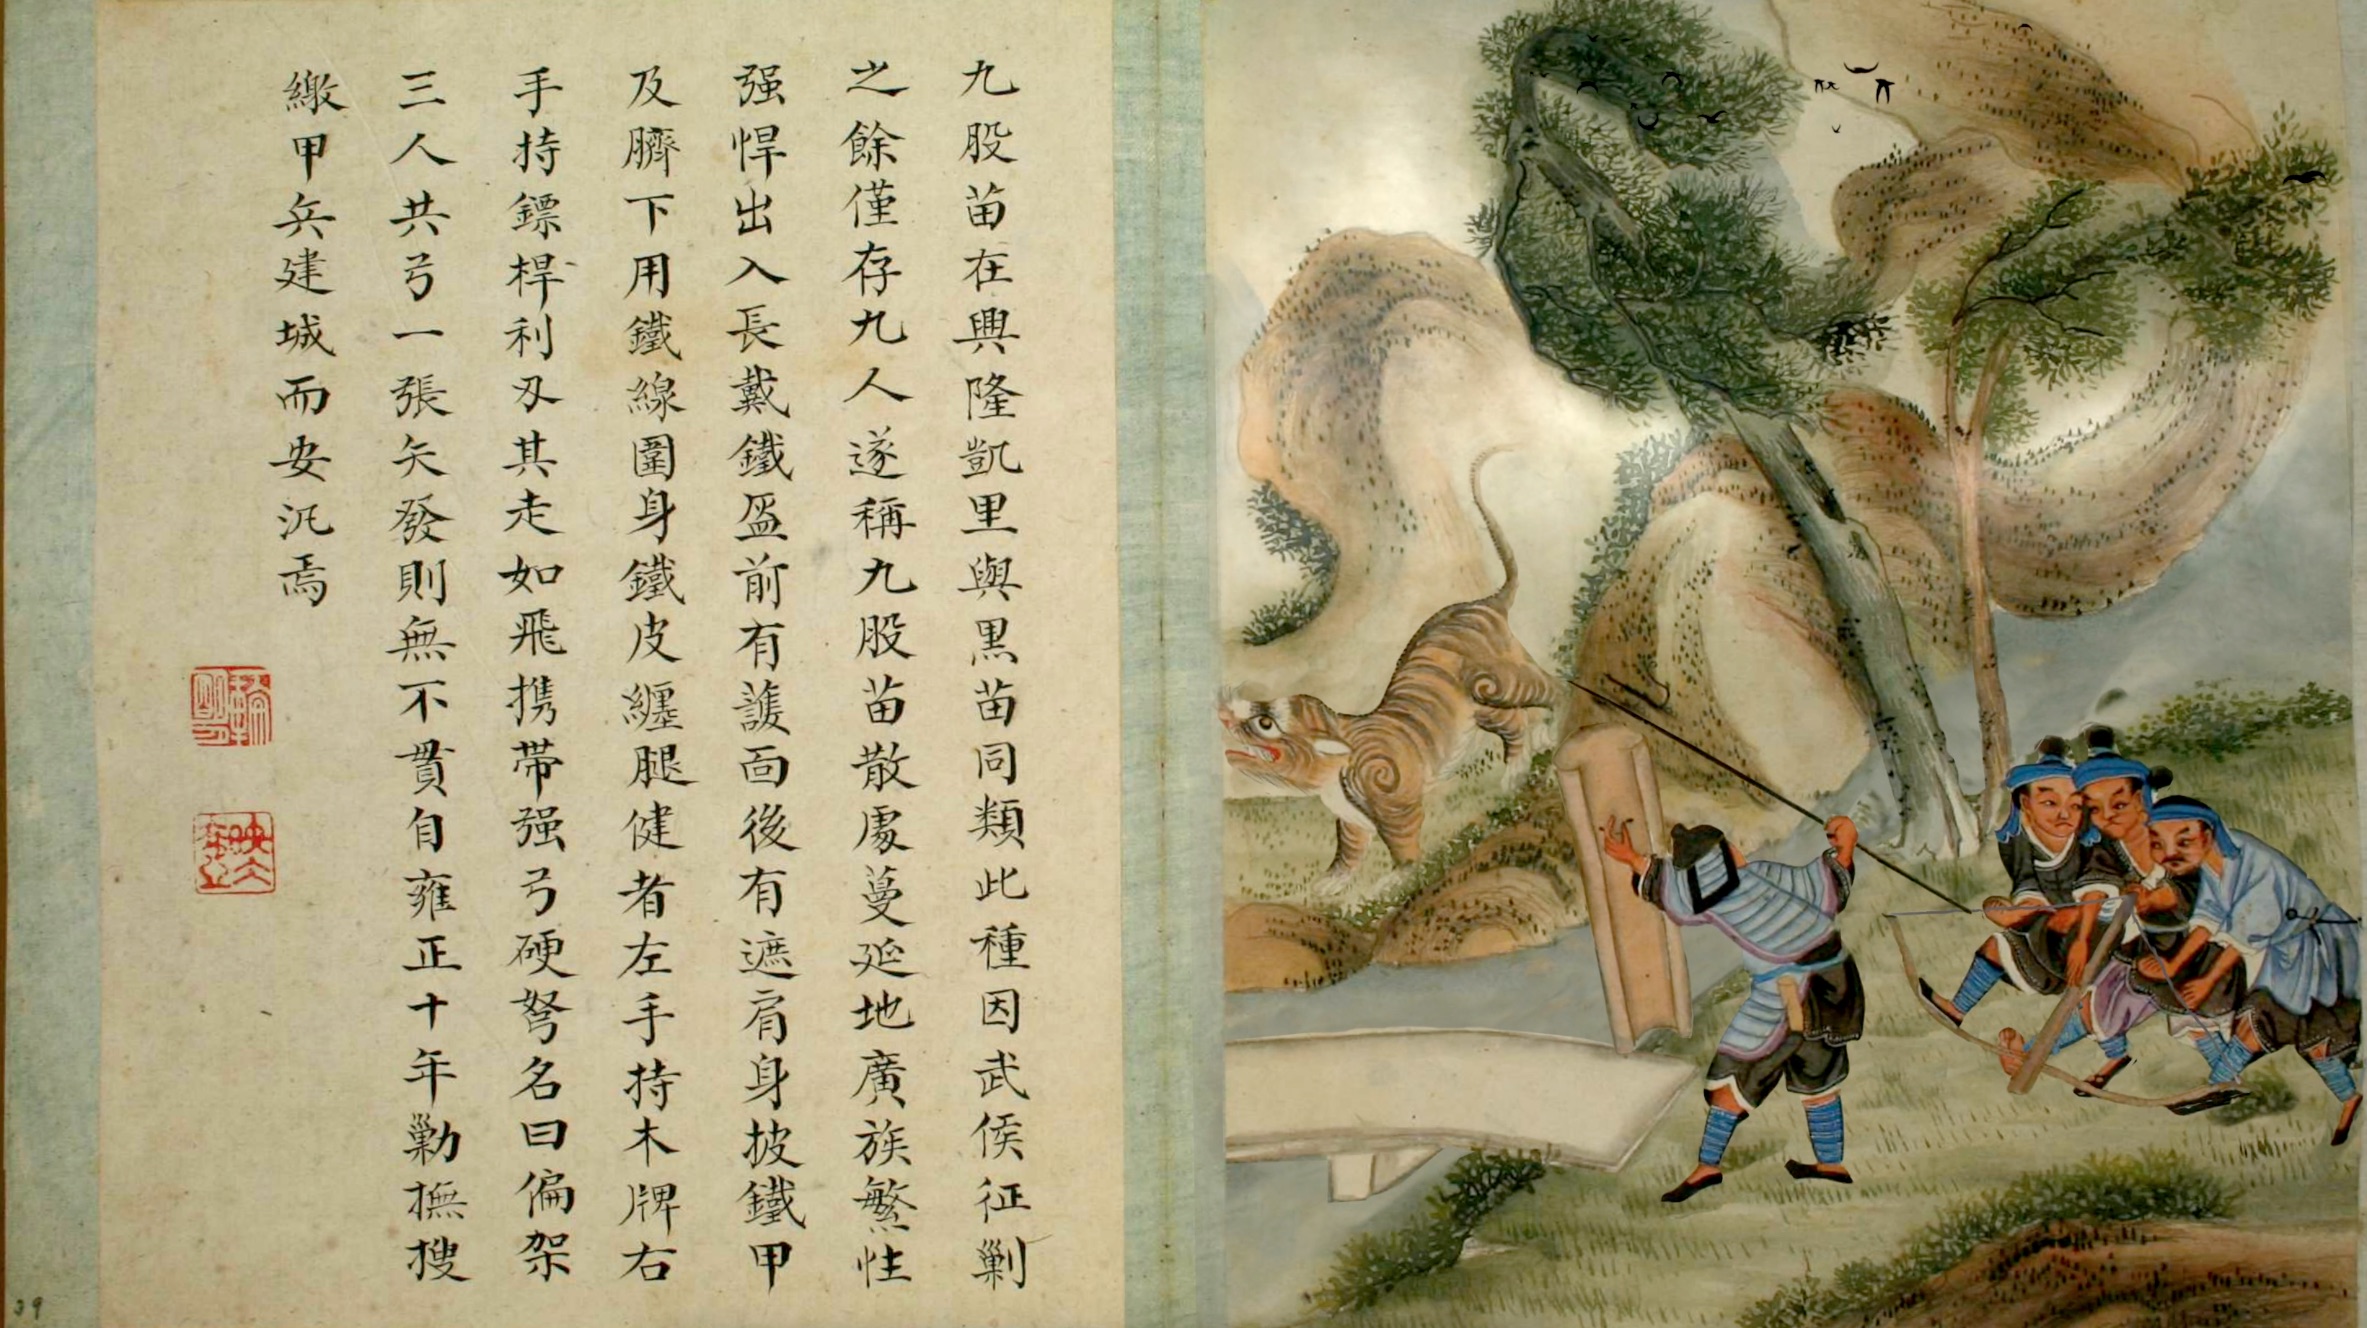 九股苗在興隆凱里與黑苗同類此種因武侯征剿
之餘僅存九人遂稱九股苗散處蔓延地廣族繁性
强悍出入長戴鐵盔前有護面後有遮肩身披鐵甲
及臍下用鐵線圍身鐵皮纏腿健者左手持木牌右
手持鏢桿利刄其走如飛携带强弓硬弩名曰偏架
三人共弓一張矢發則無不貫自雍正十年勦撫搜
繳甲兵建城而安汛焉
39